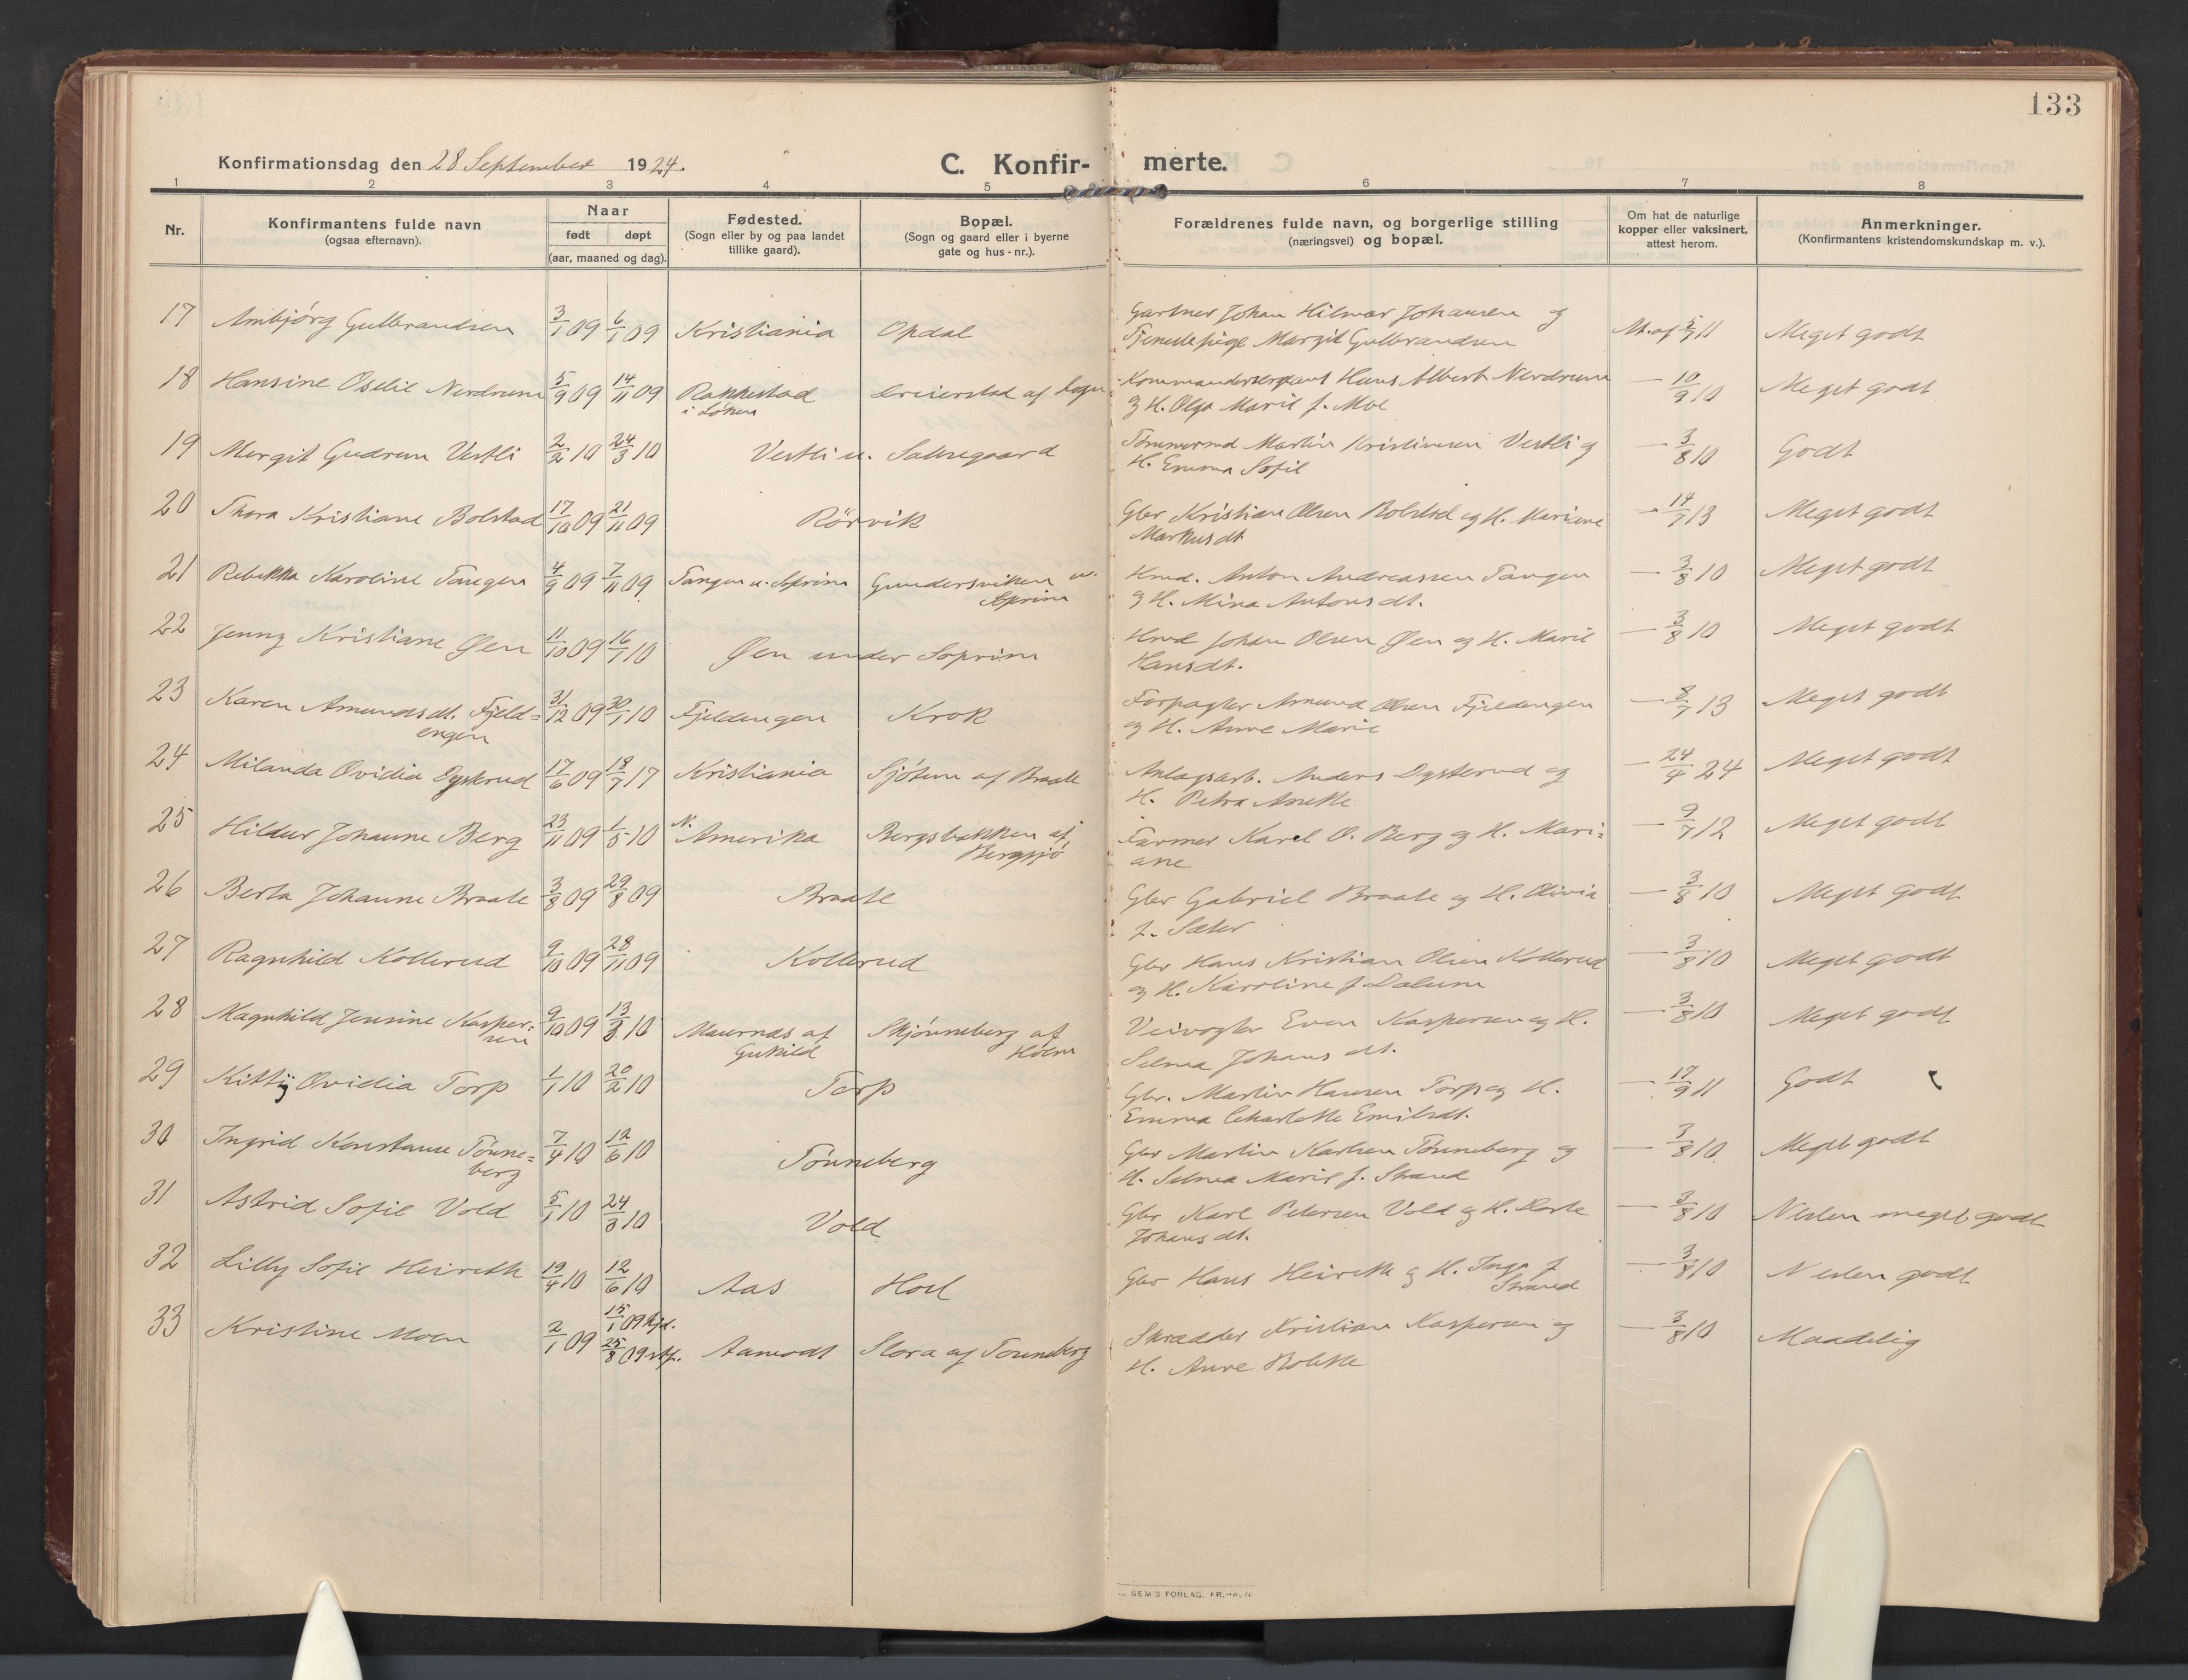 133
Konfirmationsdag den 28 September 1924.
C. Konfir-merte.
1 2 3 4 5 6 7 8
Nr.
Konfirmantens fulde navn
(ogsaa efternavn).
Naar
født døpt
(aar, maaned og dag).
Fødested.
(Sogn eller by og paa landet
tillike gaard).
Bopæl.
(Sogn og gaard eller i byerne
gate og hus-nr.).
Forældrenes fulde navn, og borgerlige stilling
(næringsvei) og bopæl.
Om hat de naturlige
kopper eller vaksinert,
attest herom.
Anmerkninger.
(Konfirmantens kristendomskundskap m. v.).
17 Ambjørg Gulbrandsen 3/1 09 6/1 09 Kristiania Opdal Gartner Johan Hilmar Johansen og
Tjenestepige Margit Gulbrandsen At. af 5/7 11 Meget godt
18 Hansine Oselie Nerdrum 5/9 09 14/11 09 Rakkestad
i Løken Dreierstad af Sogn Kommandersersjant Hans Albert Nerdrum
og H. Olga Marie f. Moe — 10/9 10 Meget godt
19 Margit Gudrun Vestli 2/2 10 24/3 10 Vestli u. Saksegaard Tømmermd Martin Kristiansen Vestli og
H. Emma Sofie — 3/8 10 Godt
20 Thora Kristiane Bolstad 17/10 09 21/11 09 Rørvik Gbr Kristian Olsen Bolstad og H. Mariane
Markusdt — 14/7 13 Meget godt
21 Rebekka Karoline Tangen 4/9 09 7/11 09 Tangen u. Soprim Gundersviken u.
Soprim Hmd. Anton Andreassen Tangen
og H. Mina Antonsdt. — 3/8 10 Meget godt
22 Jenny Kristiane Øen 11/10 09 16/1 10 Øen under Soprim Hmd Johan Olsen Øen og H. Marie
Hansdt. — 3/8 10 Meget godt
23 Karen Amundsdt. Fjeld=
engen 31/12 09 30/1 10 Fjeldengen Krok Forpagter Amund Olsen Fjeldengen
og H. Anne Marie — 8/7 13 Meget godt
24 Milanda Ovidia Dysterud 17/6 09 18/7 17 Kristiania Sjøtun af Braate Anlægsarb. Anders Dysterud og
H. Petra Anette — 24/4 24 Meget godt
25 Hildur Johanne Berg 23/11 09 1/5 10 N. Amerika Bergsbakken af
Bergsjø Farmer Karel O. Berg og H. Mari=
ane — 9/7 12 Meget godt
26 Berta Johanne Braate 3/8 09 29/8 09 Braate Gbr Gabriel Braate og H. Olivia
f. Sæter — 3/8 10 Meget godt
27 Ragnhild Kollerud 9/10 09 28/11 09 Kollerud Gbr Hans Kristian Olsen Kollerud
og H. Karoline f. Dalum — 3/8 10 Meget godt
28 Magnhild Jensine Kasper=
sen 9/10 09 13/3 10 Maurnæs af
Gukild Skjønneberg af
Holm Veivogter Even Kaspersen og H.
Selma Johansdt. — 3/8 10 Meget godt
29 Kitty Ovidia Torp 1/1 10 20/2 10 Torp Gbr. Martin Hansen Torp og H.
Emma Charlotte Emilsdt. — 17/9 11 Godt
30 Ingrid Konstanse Tønne=
berg 7/4 10 12/6 10 Tønneberg Gbr Martin Karlsen Tønneberg og
H. Selma Marie f. Strand — 3/8 10 Meget godt
31 Astrid Sofie Vold 5/1 10 24/3 10 Vold Gbr Karl Petersen Vold og H. Dorte
Johansdt. — 3/8 10 Nesten meget godt
32 Lilly Sofie Heireth 19/4 10 12/6 10 Aas Hoel Gbr Hans Heireth og H. Inga f.
Strand — 3/8 10 Nesten godt
33 Kristine Moen 2/1 09 15/1 09 hjd.
25/8 09 stf. Aamodt Slora af Tønneberg Skrædder Kristian Kaspersen og
H. Anne Bolette — 3/8 10 Maadelig
SEM'S FORLAG, FR.HALD.